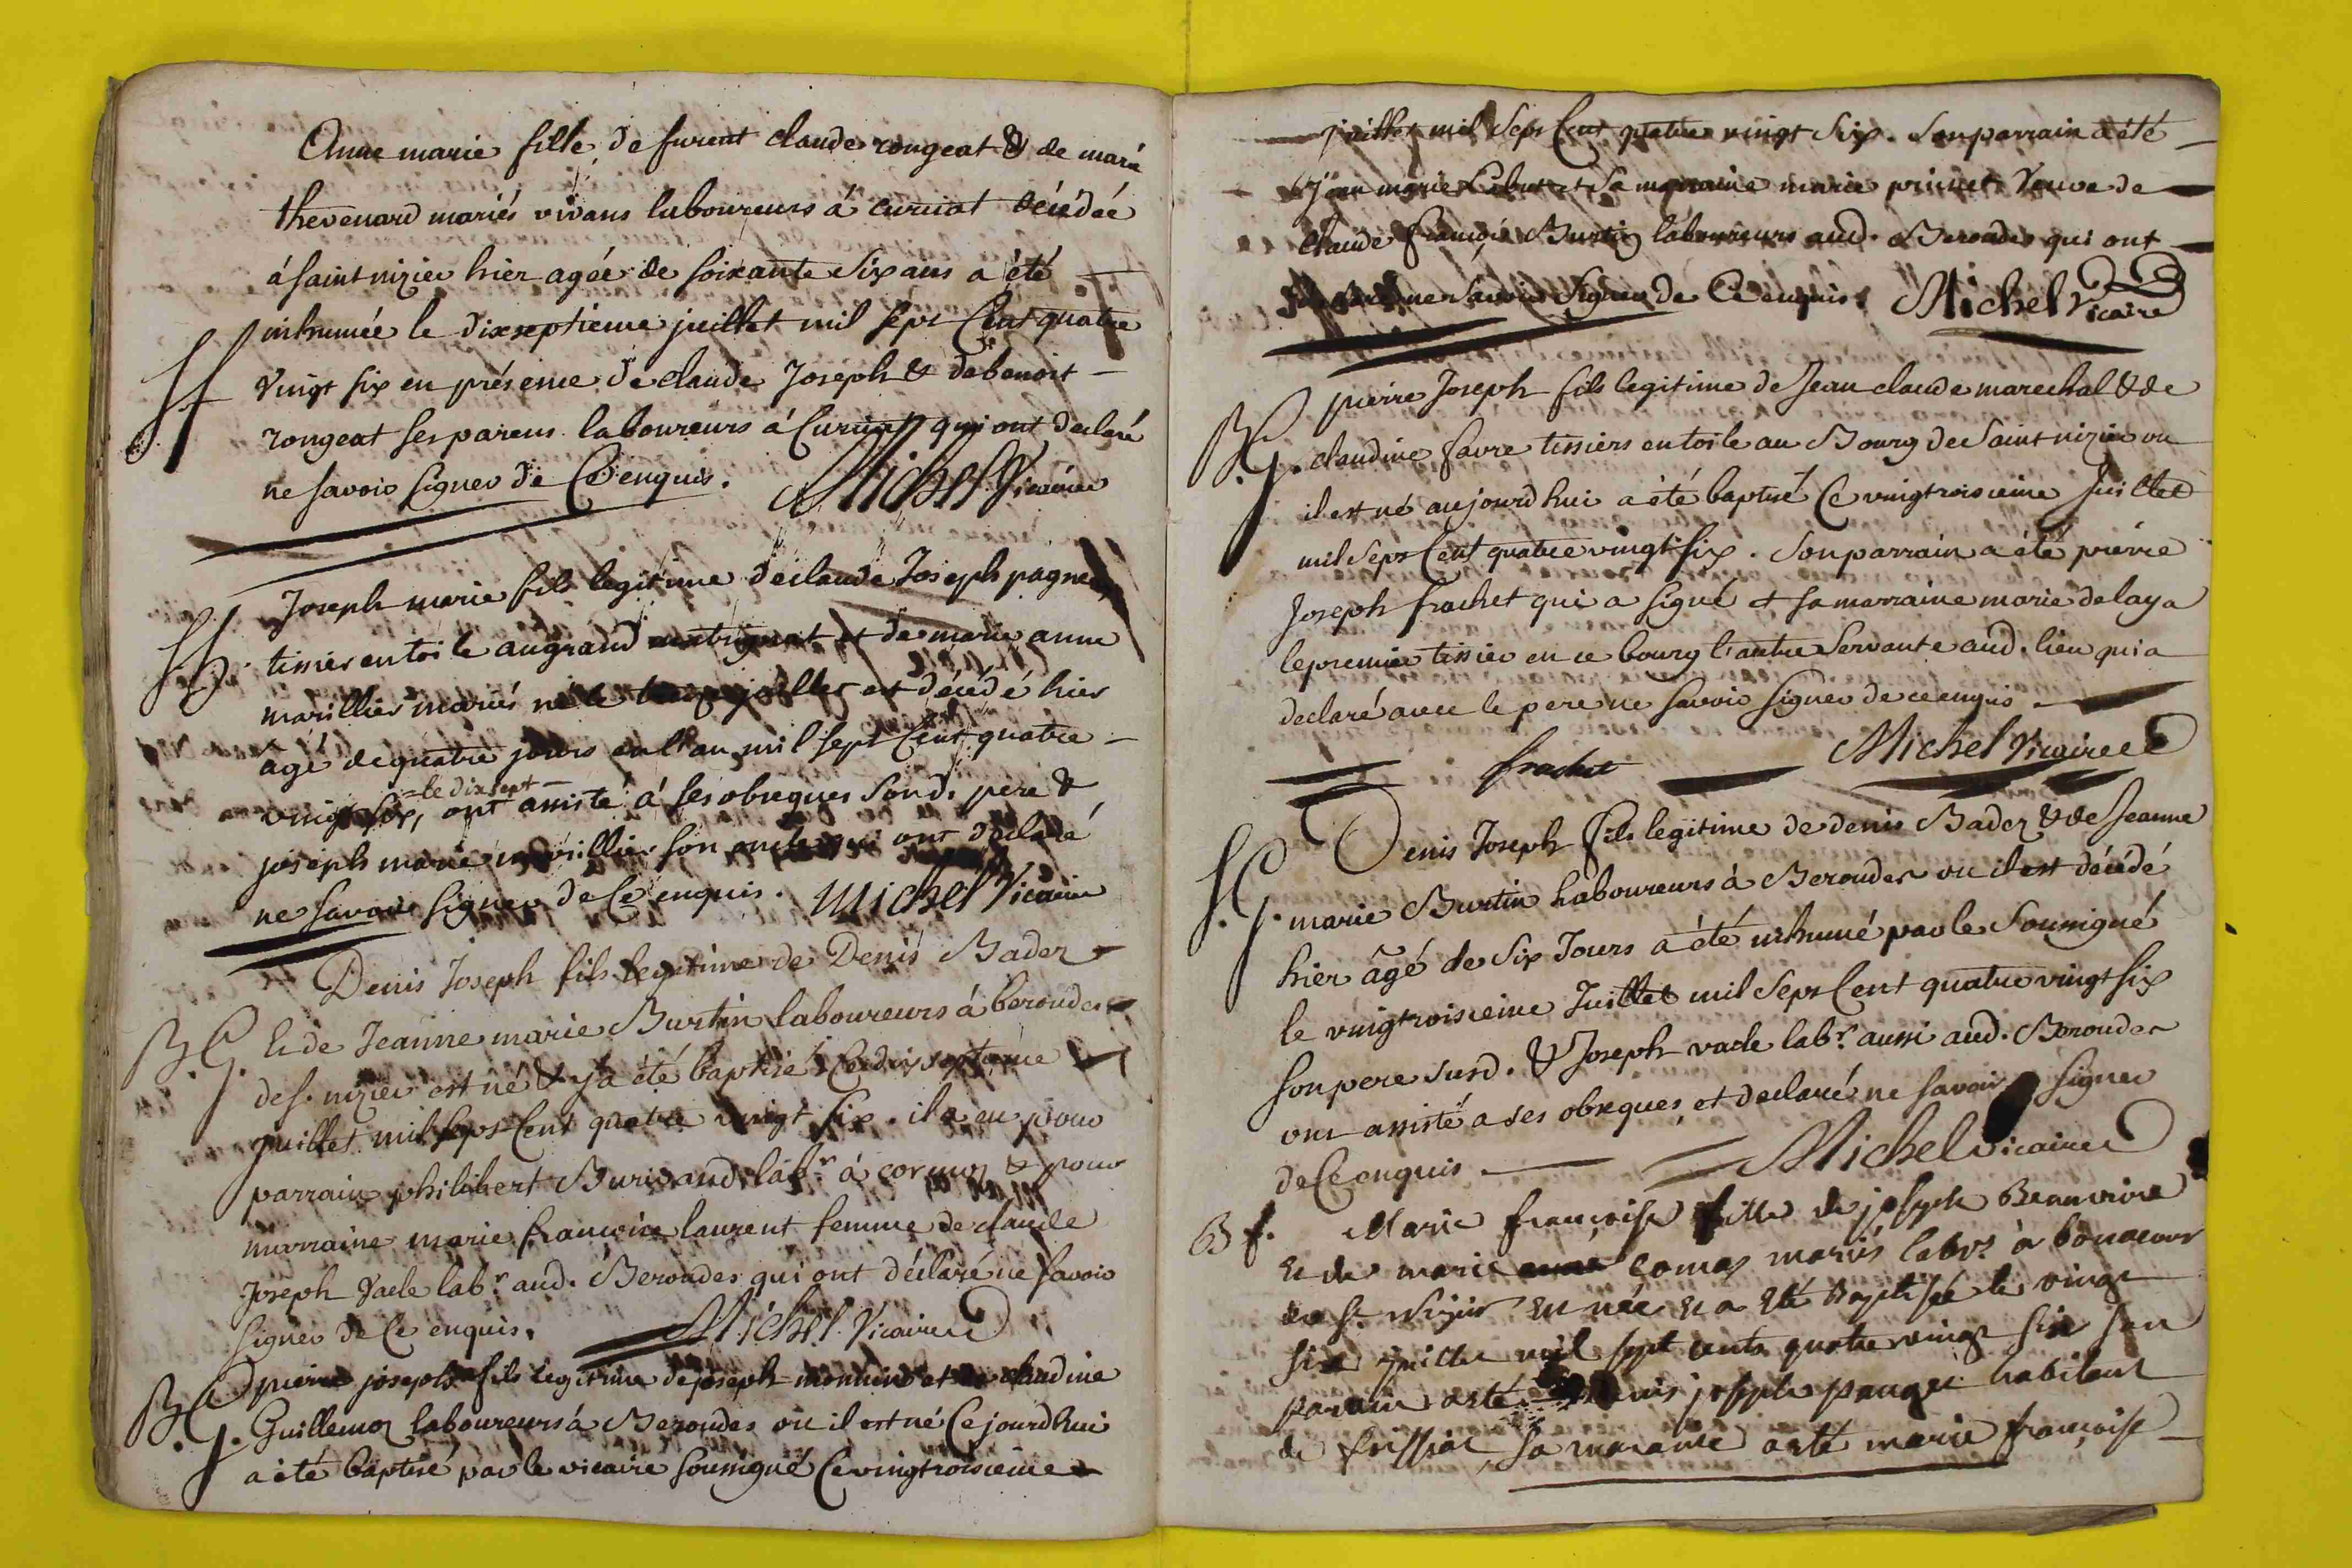 Anne marie fille de furent claude rongeat & de marie
thevenard mariés vivans laboureurs á curciat décédée
á saint nizier hier agée de soixante six ans a été
inhumée le dixseptieme juillet mil sept Cent quatre
vingt six en présence de claude Joseph & de benoit
rongeat ses parens laboureurs á Curciat qui ont declaré
ne savoir signer de Ce enquis. Michel Vicaire
Joseph marie fils legitime de claude Joseph pagneux
S.G. tissier en toile au grand et de marie anne
marillier mariés né le juillet est décédé hier
âgé de quatre jours en l'an mil sept Cent quatre
=le dix sept=
vingt six, ont assisté á ses obseques sond. pere &
joseph marie marillier son oncle qui ont déclaré
ne savoir signer de Ce enquis. Michel Vicaire
Denis Joseph fils legitime de Denis Badez
B.G. & de Jeanne marie Burtin laboureurs á beroudes
de s. nizier est né & y a été baptisé Ce dix septieme
juillet mil sept Cent quatre vingt six. il a eu pour
parrain philibert Burivand labr á cormoz & pour
marraine marie francoise laurent femme de claude
Joseph vacle labr aud. Beroudes qui ont déclaré ne savoir
signer de Ce enquis. Michel Vicaire
pierre joseph fils legitime de joseph monnier et de claudine
B.G. Guillemoz laboureurs á Beroudes ou il est né Ce jourdhui
a été baptisé par le vicaire soussigné Ce vingtroisieme
juillet mil sept Cent quatre vingt six. son parrain a été
jean marie et sa marraine marie veuve de
claude françois Burtin laboureurs aud. Beroudes qui ont
ne savoir signer de Ce enquis. Michel Vicaire
pierre Joseph fils legitime de Jean claude marechal & de
B.G. claudine favre tissiers en toile au Bourg de Saint nizier ou
il est né aujourdhui a été baptisé Ce vingtroisieme Juillet
mil sept Cent quatre vingt six. son parrain a été pierre
Joseph frachet qui a signé et sa marraine marie delaya
le premier tissier en ce bourg l'autre servante aud. lieu qui a
declaré avec le pere ne savoir signer de ce enquis.
frachet Michel Vicaire
Denis Joseph fils legitime de denis Badez & de Jeanne
S.G. marie Burtin laboureurs á Beroudes ou il est décédé
hier âgé de six Jours a été inhumé par le soussigné
le vingtroisieme Juillet mil sept Cent quatre vingt six
son pere susd. & Joseph vacle labr. aussi aud. Beroudes
ont assisté a ses obseques et declaré ne savoir signer
de Ce enquis. Michel vicaire
B f. Marie françoise fille de joseph Beauvoire
et de marie comas mariés labrs à bonacour
de st nizier est née et a été Baptisée le vingt
six juillet mil sept cents quatre vingt six son
parain a eté joseph habitant
de frissiat, sa maraine a eté marie françoise